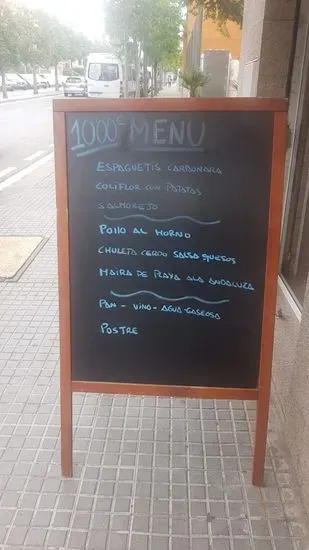 10'00€ MENU
ESPAGUETIS CARBONARA
COLIFLOR CON PATATAS
SALMOREJO
POLLO AL HORNO
CHULETA CERDO SALSA QUESOS
MAIRA DE PLAYA ALA ANDALUZA
PAN - VINO - AGUA - GASEOSA
POSTRE